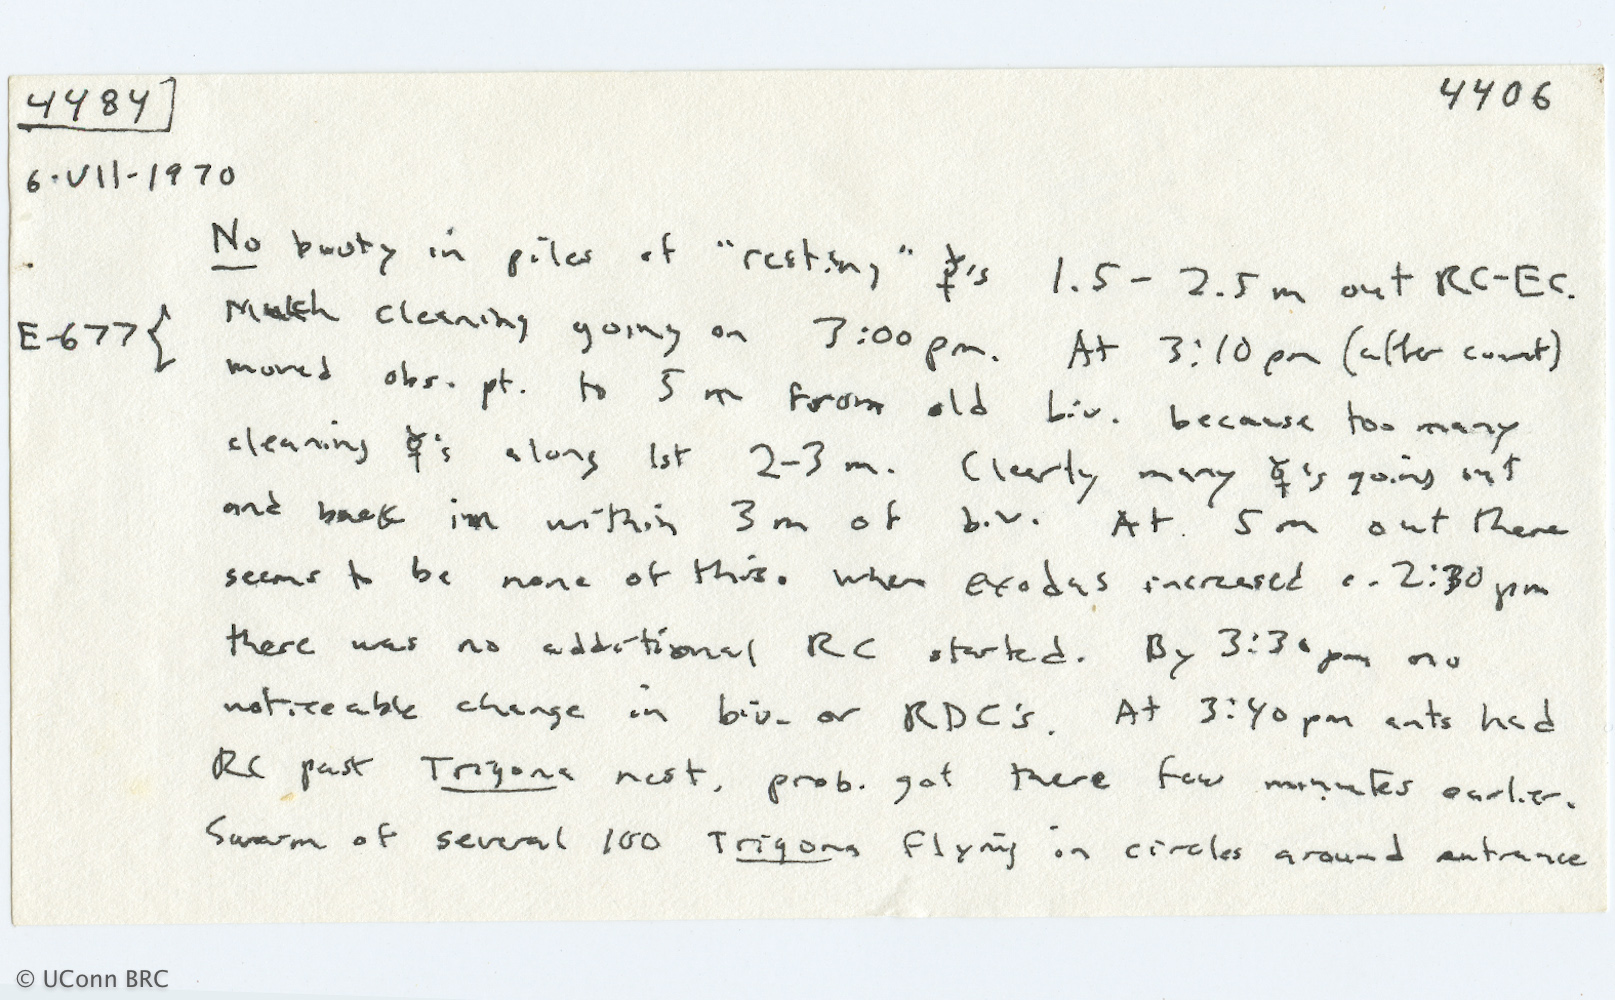 4484] 4406
6-VII-1970
No booty in piles of "resting" ☿'s 1.5-2.5 m out RC-EC.
E-677 { Much cleaning going on 3:00 pm. At 3:10 pm (after count)
moved obs. pt. to 5 m from old biv. because too many
cleaning ☿'s along 1st 2-3 m. Clearly many ☿'s going out
and back in within 3 m of biv. At 5 m out there
seems to be none of this. When exodus increased c. 2:30 pm
there was no additional RC started. By 3:30 pm no
noticeable change in biv. or RDC's. At 3:40 pm ants had
RC past Trigona nest, prob. got there few minutes earlier.
Swarm of several 100 Trigona flying in circles around entrance
© UConn BRC